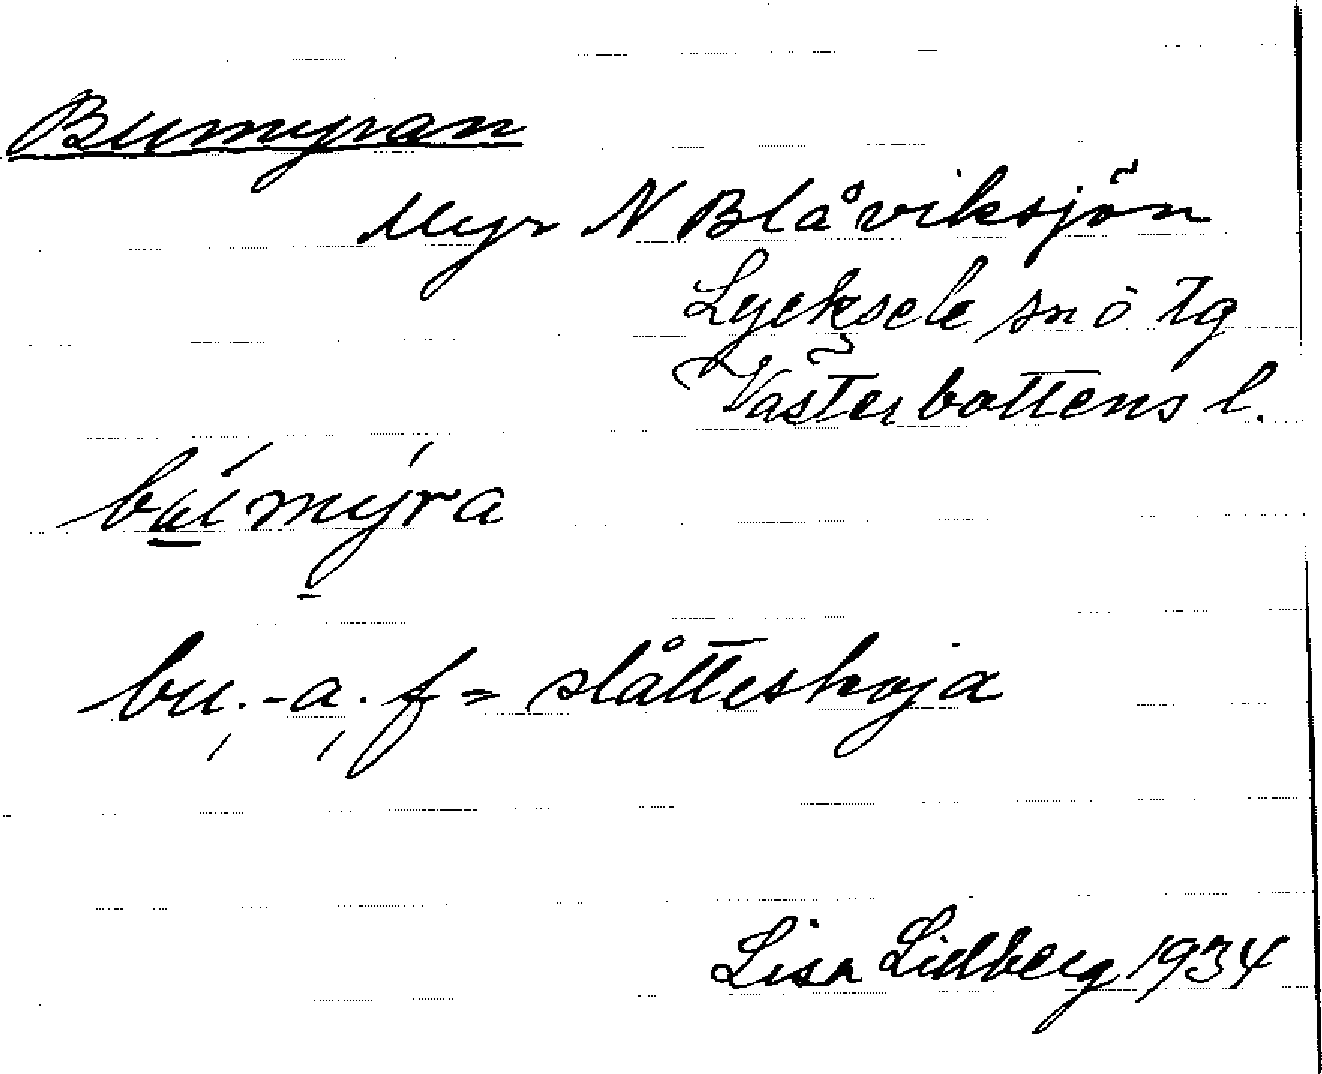 Bumyran
Myr N Blåviksjön
Lycksele sn o tg
Västerbottens l.
bu. -a. f = slåtteskoja
Lisa Lidberg 1934